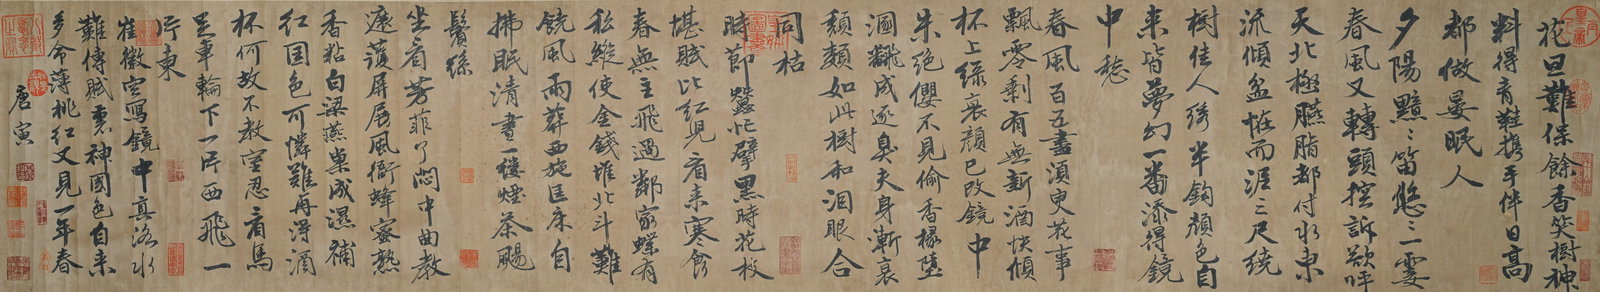 花旦難保餘香笑樹神
料得青鞋攜手伴日高
都做晏眠人
夕陽黯黯笛悠悠一霎
春風又轉頭控訴欲呼
天北極臙脂都付水東
流傾盆恠雨泥三尺繞
樹佳人繡半鈎顏色自
来皆夢幻一番添得鏡
中愁
春風百五盡須臾花事
飄零剩有無新酒快傾
杯上綠衰顏已改鏡中
朱絕纓不見偷香掾墮
溷翻成逐臭夫身漸衰
頹類如此樹和淚眼合
同枯
時節蠶忙擘黑時花枝
堪賦比紅兒看来寒食
春無主飛過鄰家蝶有
私縱使金錢堆北斗難
饒風雨葬西施匡床自
拂眠清晝一縷煙茶颺
鬢絲
坐看芳菲了悶中曲教
遮護屏展風銜蜂蜜熟
香粘白梁燕巢成濕補
紅國色可憐難再得酒
杯何故不教空忍看馬
足車輪下一片西飛一
片東
崔徽空寫鏡中真洛水
難傳賦裏神國色自来
多命薄桃紅又見一年春
唐寅